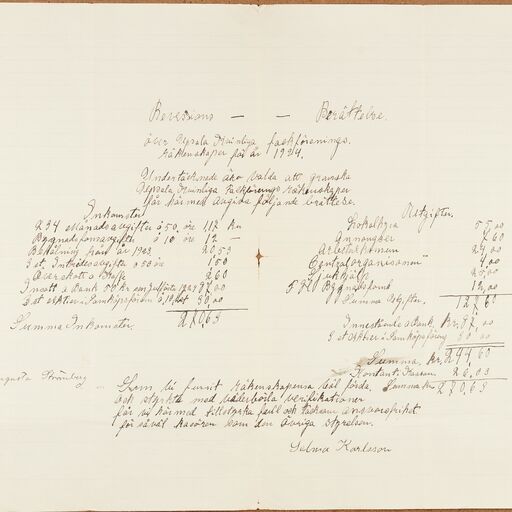 Revisions — — Berättelse.
över Upsala Kvinnliga fackförenings
räkenskaper för år 1904.
Undertecknade äro valda att granska
Upsala Kvinnliga Fackförenings räkenskaper
får härmed avgiva följande berättelse.
Inkomster
234 Månadsavgifter á 50 öre 117 kr
Byggnadsfonsavgifter á 10 öre 12 —
Behållning från år 1903 20 53
3 st. Inträdesavgifter á 50 öre 1 50
Överskott å Kaffe 2 60
Insatt i Bank 87 00
3 st Aktier i Samköpsföreni á 10, st 30,00
Summa Inkomster. 270,63
Utgifter.
Lokalhyra 55,00
Annonser 7 60
Arbetarkomun 24,00
Centralorganisation 4,00
Sjukhjälp 25,00
Byggnadsfond 12,00
Summa Utgifter. 127 60
Innestående å Bank Kr. 87,00
3 st Aktier i Samköpsförening 30 00
Summa Kr. 244,60
Kontant i Kassan 26,03
Summa Kr 270,63
Augusta Strömberg
Som vi funnit räkenskaperna väl förda,
och styrkta med vederbörliga verifikationer
får vi härmed tillstyrka full och tacksam ansvarsfrihet
för såväl kasören som den övriga styrelsen.
Selma Karlsson